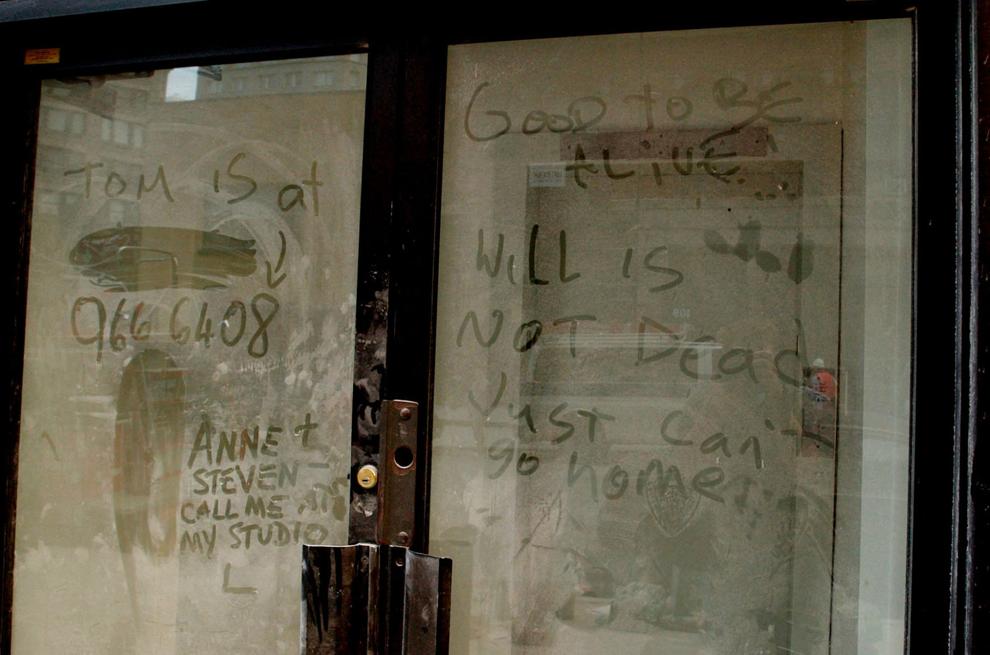 TOM IS at
966 6408
ANNE +
STEVEN -
CALL ME AT
MY STUDIO
L
GOOD to BE
ALiVE...
WiLL iS
NOT Dead
Just Can't
go home